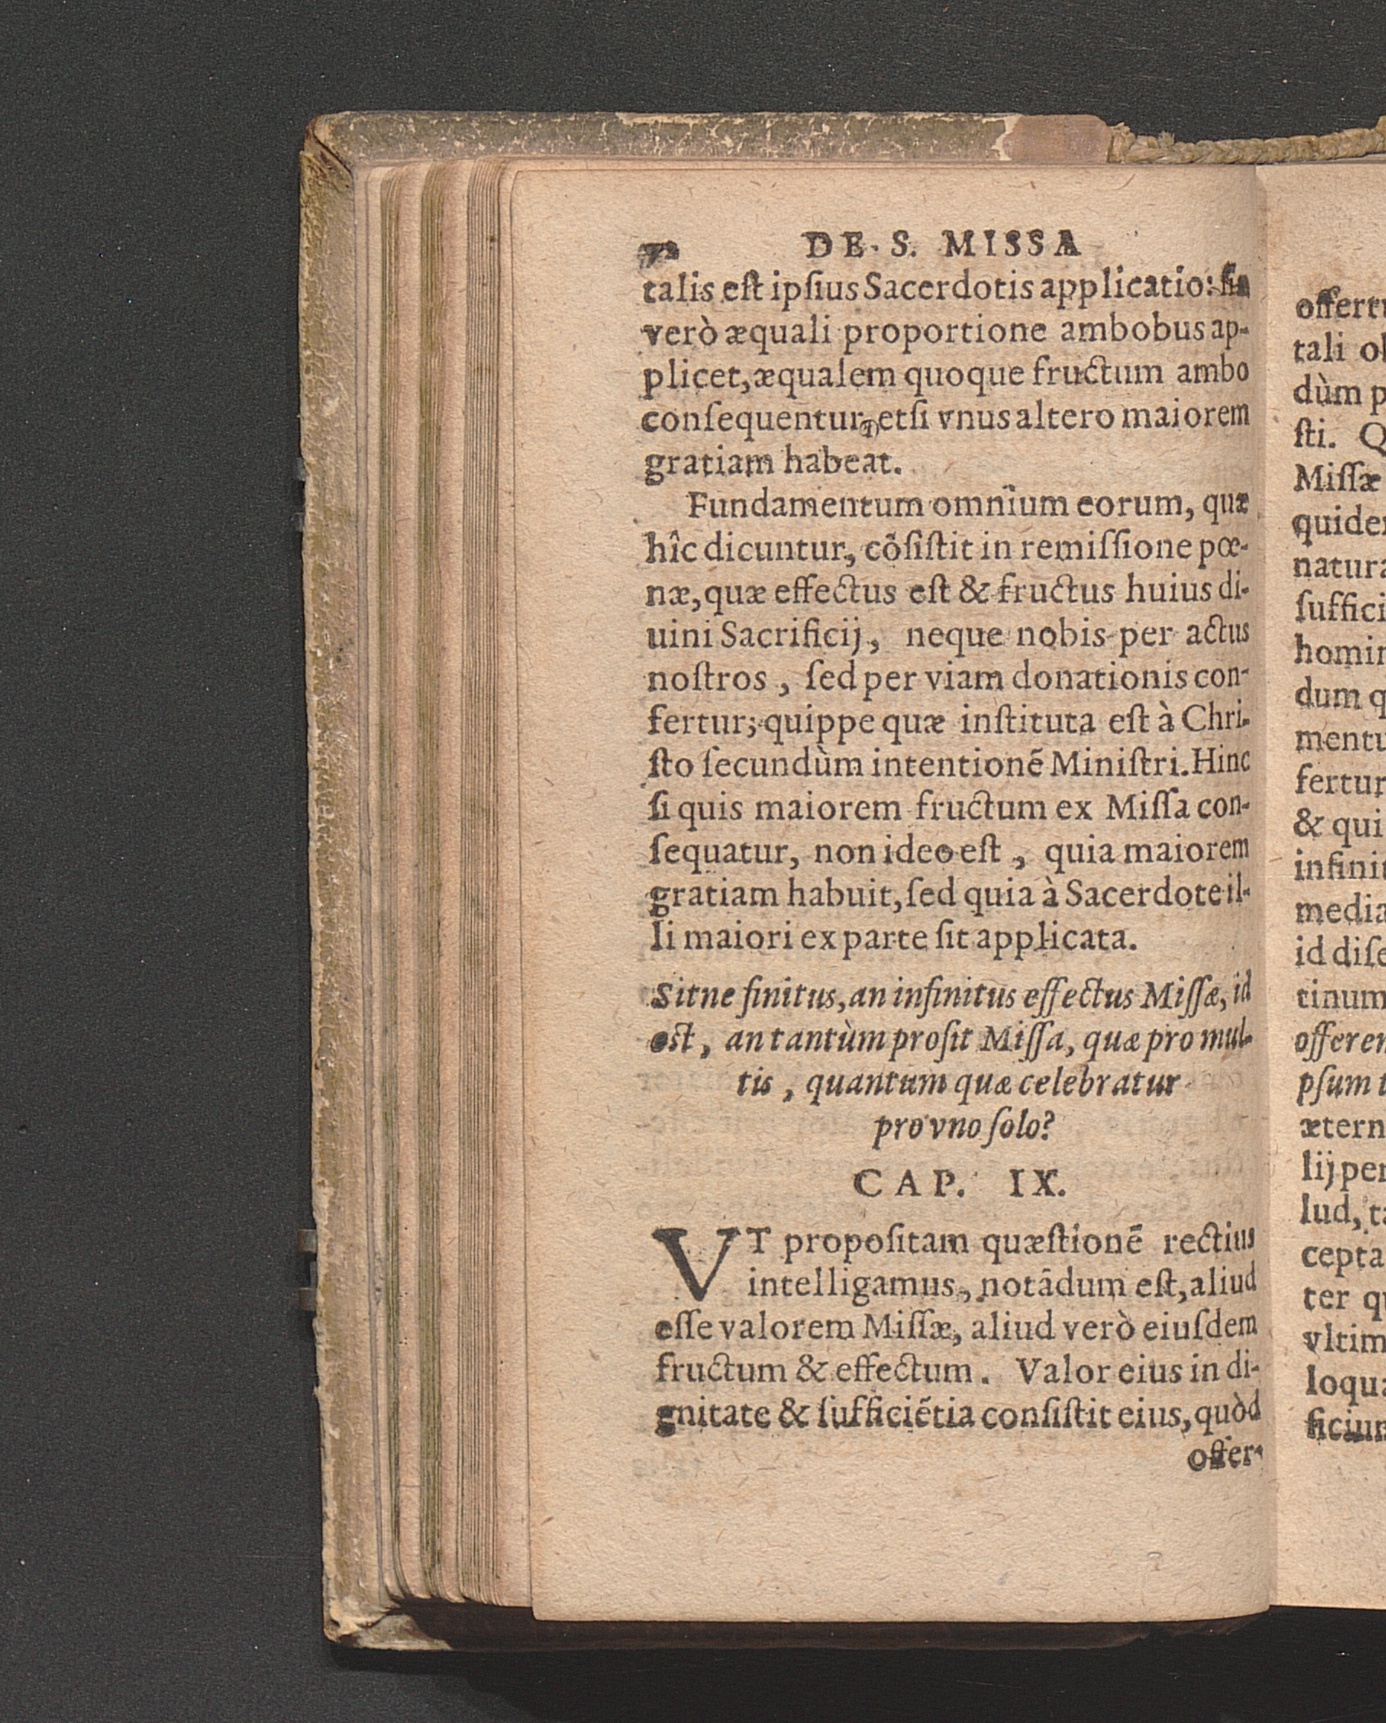 DE S. MISSA
talis est ipsius Sacerdotis applicatio: sin
verò æquali proportione ambobus ap-
plicet, æqualem quoque fructum ambo
consequentur, etsi vnus altero maiorem
gratiam habeat.
Fundamentum omnium eorum, quæ
hîc dicuntur, cõsistit in remissione pœ-
næ, quæ effectus est & fructus huius di-
uini Sacrificij, neque nobis per actus
nostros, sed per viam donationis con-
fertur; quippe quæ instituta est à Chri-
sto secundùm intentionē Ministri. Hinc
si quis maiorem fructum ex Missa con-
sequatur, non ideo est, quia maiorem
gratiam habuit, sed quia à Sacerdote il-
li maiori ex parte sit applicata.
Sitne finitus, an infinitus effectus Missæ, id
est, an tantùm prosit Missa, quæ pro mul-
tis, quantum quæ celebratur
pro vno solo?
CAP. IX.
VT propositam quæstionē rectius
intelligamus, notādum est, aliud
esse valorem Missæ, aliud verò eiusdem
fructum & effectum. Valor eius in di-
gnitate & sufficiētia consistit eius, quòd
offer-
offertu
tali ob
dùm p
sti. Q
Missæ
quider
natura
suffici
homin
dum q
mentu
fertur
& qui
infinit
media
id dise
tinum
offeren
psum t
ætern
lij per
lud, ta
cepta
ter qu
vltim
loqua
ficium